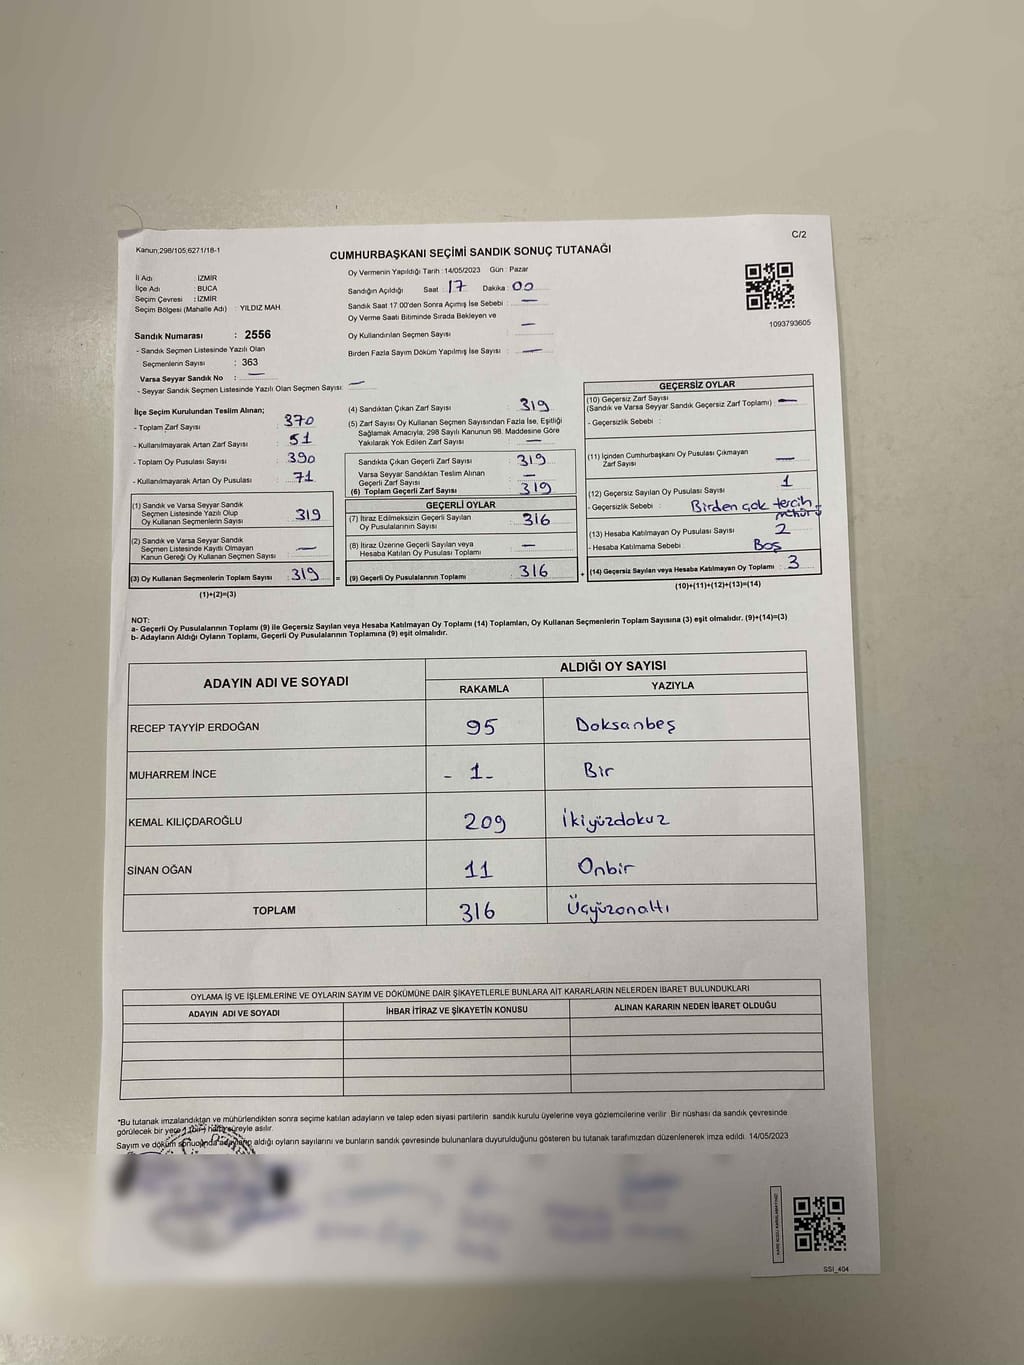 C/2
Kanun;298/105;6271/18-1
CUMHURBAŞKANI SEÇİMİ SANDIK SONUÇ TUTANAĞI
İl Adı : İZMİR
İlçe Adı : BUCA
Seçim Çevresi : İZMİR
Seçim Bölgesi (Mahalle Adı) : YILDIZ MAH.
Sandık Numarası : 2556
- Sandık Seçmen Listesinde Yazılı Olan
Seçmenlerin Sayısı : 363
Varsa Seyyar Sandık No : —
- Seyyar Sandık Seçmen Listesinde Yazılı Olan Seçmen Sayısı: —
Oy Vermenin Yapıldığı Tarih : 14/05/2023 Gün : Pazar
Sandığın Açıldığı Saat : 17 Dakika : 00
Sandık Saat 17.00'den Sonra Açımış İse Sebebi : —
Oy Verme Saati Bitiminde Sırada Bekleyen ve
Oy Kullandırılan Seçmen Sayısı : —
Birden Fazla Sayım Döküm Yapılmış İse Sayısı : —
1093793605
İlçe Seçim Kurulundan Teslim Alınan;
- Toplam Zarf Sayısı : 370
- Kullanılmayarak Artan Zarf Sayısı : 51
- Toplam Oy Pusulası Sayısı : 390
- Kullanılmayarak Artan Oy Pusulası : 71
(1) Sandık ve Varsa Seyyar Sandık
Seçmen Listesinde Yazılı Olup
Oy Kullanan Seçmenlerin Sayısı : 319
(2) Sandık ve Varsa Seyyar Sandık
Seçmen Listesinde Kayıtlı Olmayan
Kanun Gereği Oy Kullanan Seçmen Sayısı : —
(3) Oy Kullanan Seçmenlerin Toplam Sayısı : 319 =
(1)+(2)=(3)
(4) Sandıktan Çıkan Zarf Sayısı : 319
(5) Zarf Sayısı Oy Kullanan Seçmen Sayısından Fazla İse, Eşitliği
Sağlamak Amacıyla, 298 Sayılı Kanunun 98. Maddesine Göre
Yakılarak Yok Edilen Zarf Sayısı : —
Sandıkta Çıkan Geçerli Zarf Sayısı : 319
Varsa Seyyar Sandıktan Teslim Alınan
Geçerli Zarf Sayısı : —
(6) Toplam Geçerli Zarf Sayısı : 319
GEÇERLİ OYLAR
(7) İtiraz Edilmeksizin Geçerli Sayılan
Oy Pusulalarının Sayısı : 316
(8) İtiraz Üzerine Geçerli Sayılan veya
Hesaba Katılan Oy Pusulası Toplamı : —
(9) Geçerli Oy Pusulalarının Toplamı : 316 +
GEÇERSİZ OYLAR
(10) Geçersiz Zarf Sayısı
(Sandık ve Varsa Seyyar Sandık Geçersiz Zarf Toplamı) : —
- Geçersizlik Sebebi :
(11) İçinden Cumhurbaşkanı Oy Pusulası Çıkmayan
Zarf Sayısı : —
(12) Geçersiz Sayılan Oy Pusulası Sayısı : 1
- Geçersizlik Sebebi : Birden çok tercih
mührü
(13) Hesaba Katılmayan Oy Pusulası Sayısı : 2
- Hesaba Katılmama Sebebi : Boş
(14) Geçersiz Sayılan veya Hesaba Katılmayan Oy Toplamı : 3
(10)+(11)+(12)+(13)=(14)
NOT:
a- Geçerli Oy Pusulalarının Toplamı (9) ile Geçersiz Sayılan veya Hesaba Katılmayan Oy Toplamı (14) Toplamları, Oy Kullanan Seçmenlerin Toplam Sayısına (3) eşit olmalıdır. (9)+(14)=(3)
b- Adayların Aldığı Oyların Toplamı, Geçerli Oy Pusulalarının Toplamına (9) eşit olmalıdır.
ADAYIN ADI VE SOYADI ALDIĞI OY SAYISI
RAKAMLA YAZIYLA
RECEP TAYYİP ERDOĞAN 95 Doksanbeş
MUHARREM İNCE - 1 - Bir
KEMAL KILIÇDAROĞLU 209 İkiyüzdokuz
SİNAN OĞAN 11 Onbir
TOPLAM 316 Üçyüzonaltı
OYLAMA İŞ VE İŞLEMLERİNE VE OYLARIN SAYIM VE DÖKÜMÜNE DAİR ŞİKAYETLERLE BUNLARA AİT KARARLARIN NELERDEN İBARET BULUNDUKLARI
ADAYIN ADI VE SOYADI İHBAR İTİRAZ VE ŞİKAYETİN KONUSU ALINAN KARARIN NEDEN İBARET OLDUĞU
*Bu tutanak imzalandıktan ve mühürlendikten sonra seçime katılan adayların ve talep eden siyasi partilerin sandık kurulu üyelerine veya gözlemcilerine verilir. Bir nüshası da sandık çevresinde
görülecek bir yere 1 (bir) hafta süreyle asılır.
Sayım ve döküm sonucunda adayların aldığı oyların sayılarını ve bunların sandık çevresinde bulunanlara duyurulduğunu gösteren bu tutanak tarafımızdan düzenlenerek imza edildi. 14/05/2023
SSI_404